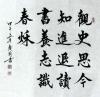 觀史思今
知進退讀
書養志識
春秋